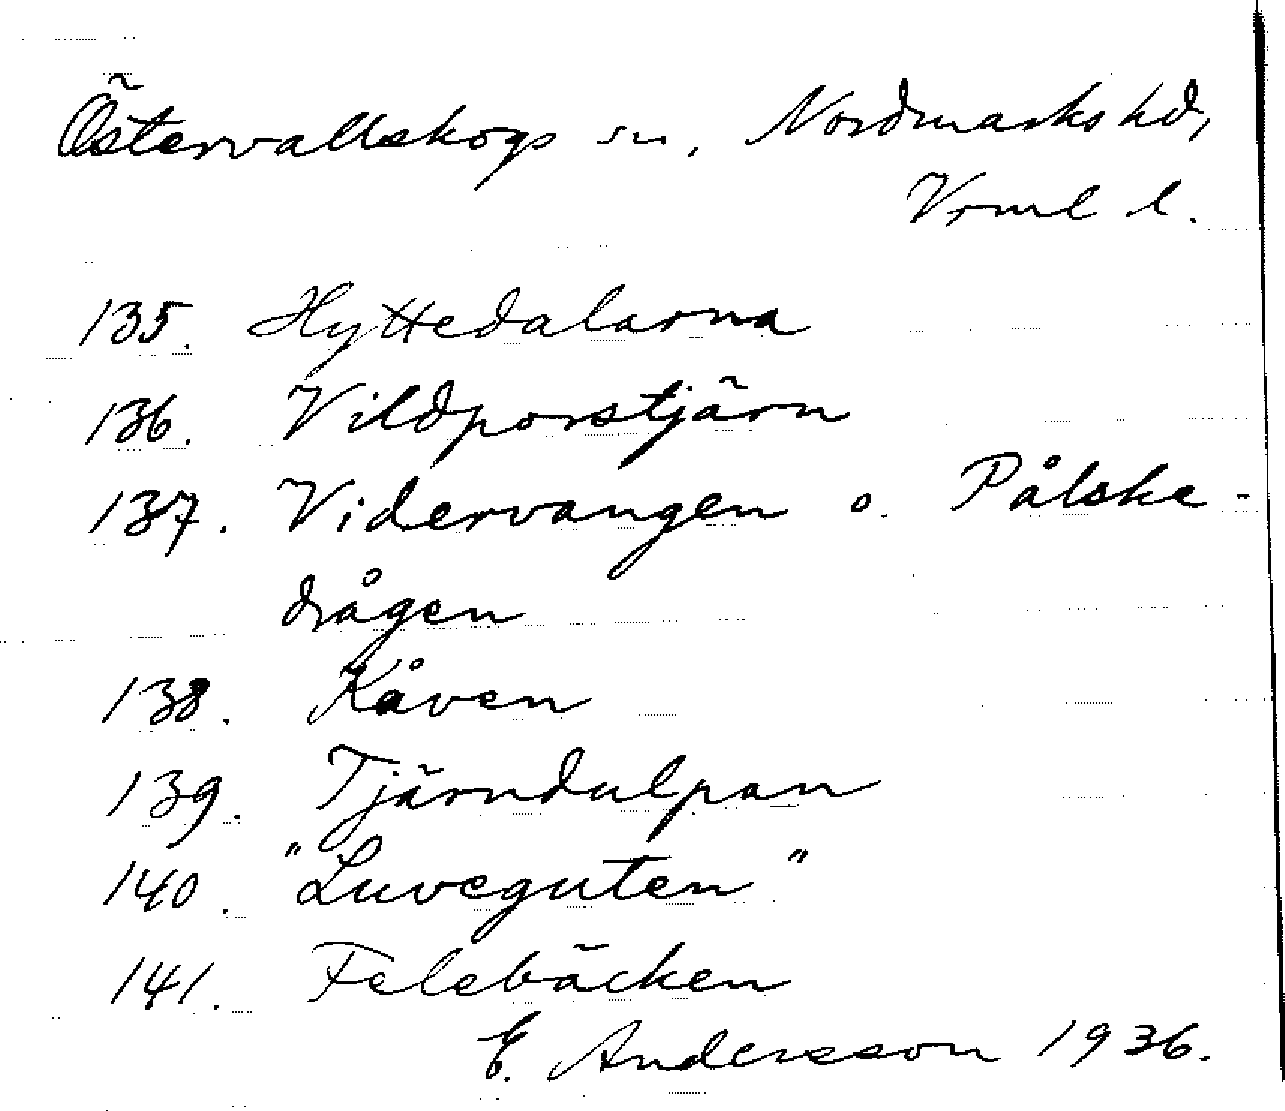 Östervallskogs sn, Nordmarks hd,
Vrml l.
135. Hyttedalarna
136. Vildporstjärn
137. Vidervangen o. Pålske-
drågen
138. Kåven
139. Tjärndulpan
140. "Luveguten"
141. Felebäcken
E. Andersson 1936.